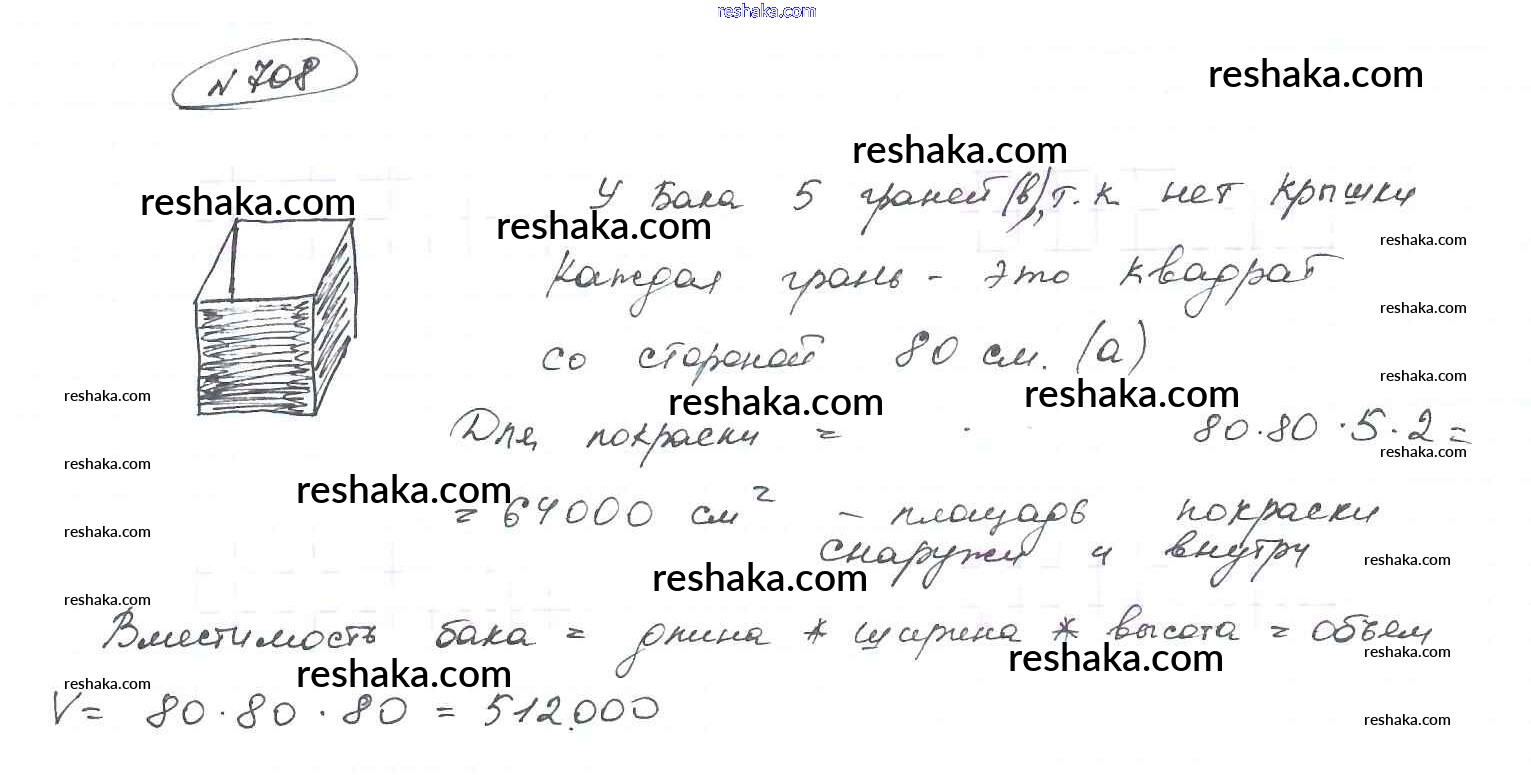 reshaka.com
N 708
reshaka.com
reshaka.com
reshaka.com
У бака 5 граней (в), т.к нет крышки
reshaka.com
reshaka.com
Каждая грань - это квадрат
reshaka.com
со стороной 80 см. (а)
reshaka.com
reshaka.com
reshaka.com
reshaka.com
Для покраски = 80·80·5·2=
reshaka.com
reshaka.com
reshaka.com
= 64000 см² - площадь покраски
reshaka.com
снаружи и внутри
reshaka.com
reshaka.com
reshaka.com
Вместимость бака = длина * ширина * высота = объем
reshaka.com
reshaka.com
reshaka.com
reshaka.com
V= 80·80·80 = 512.000
reshaka.com